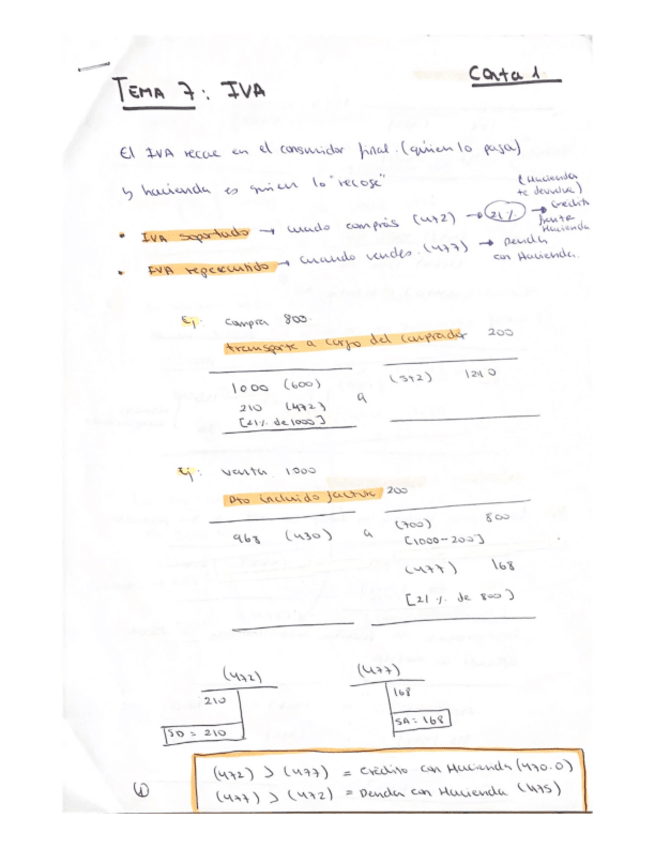 TEMA 7: IVA
Conta 1.
El IVA recae en el consumidor final. (quien lo paga)
y hacienda es quien lo "recoge"
(Hacienda te devuelve)
• IVA soportado → cuando compras (472) → 21% → crédito frente Hacienda
• IVA repercutido → cuando vendes. (477) → Deuda con Hacienda.
Ej: compra 800.
transporte a cargo del comprador 200
1000 (600) a (572) 1210
210 (472)
[21% de 1000]
Ej: venta 1000
Dto incluido factura 200
968 (430) a (700) 800
[1000-200]
(477) 168
[21 % de 800]
(472) (477)
210 168
SD = 210 SA = 168
(472) > (477) = Crédito con Hacienda (470.0)
(477) > (472) = Deuda con Hacienda (475)
①